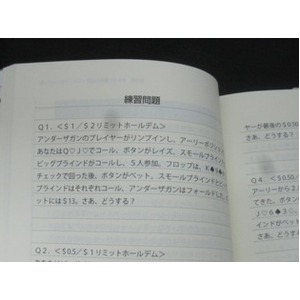 練習問題
Q1. <$1/$2リミットホールデム>
アンダーザガンのプレイヤーがリンプインし、アーリーポジ
あなたはQ♡J♡でコール。ボタンがレイズ、スモールブラインドと
ビッグブラインドがコールし、5人参加。フロップは、K♠
チェックで回った後、ボタンがベット、スモールブラインドと
ブラインドはそれぞれコール、アンダーザガンはフォールドした。
ットには$13。さあ、どうする?
Q2. <$0.5/$1リミットホールデム>
ヤーが最後の$0.50
さあ、どうする?
Q4. <$0.50/
アーリーから2
てきた。
J♡6♠3
がベット
さあ、どうする